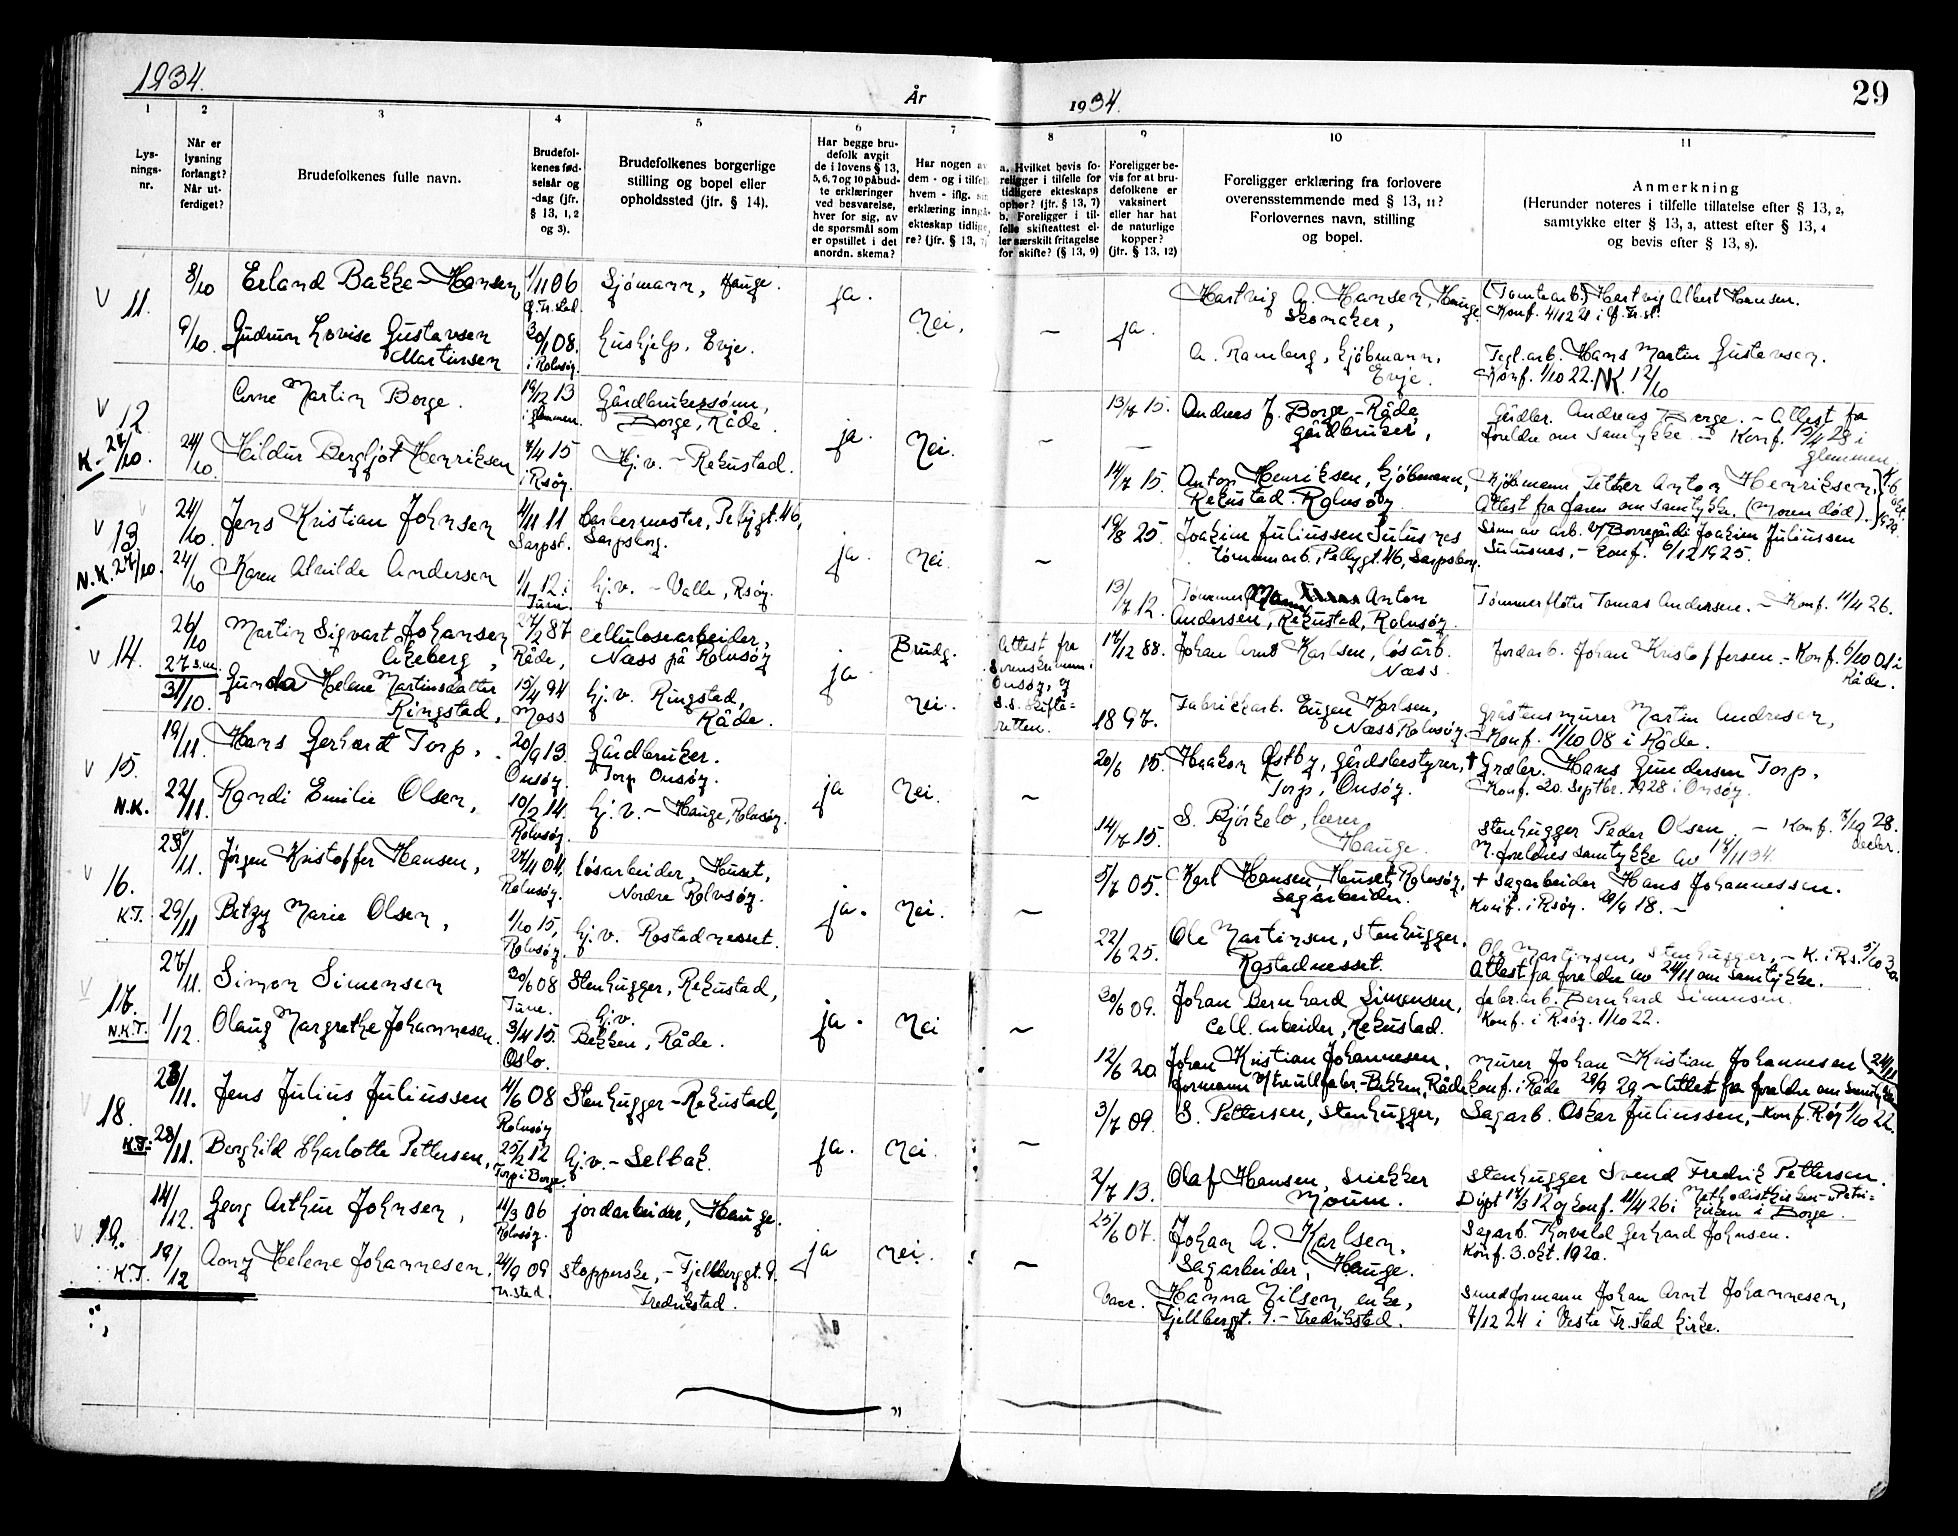 1934.
År
1934.
29
1
2
3
4
5
6
7
8
9
10
11
Lys-
nings-
nr.
Når er
lysning
forlangt?
Når ut-
ferdiget?
Brudefolkenes fulle navn.
Brudefol-
kenes fød-
selsår og
-dag (jfr.
§ 13, 1, 2
og 3).
Brudefolkenes borgerlige
stilling og bopel eller
opholdssted (jfr. § 14).
Har begge bru-
defolk avgit
de i lovens § 13,
5, 6, 7 og 10 påbud-
te erklæringer
ved besvarelse,
hver for sig, av
de spørsmål som
er opstillet i det
anordn. skema?
Har nogen av
dem - og i tilfelle
hvem - iflg.
erklæring inngå-
ekteskap tidlige
re? (jfr. § 13, 7)
a. Hvilket bevis fo-
religger i tilfelle for
tidligere ekteskaps
ophør? (jfr. § 13, 7)
b. Foreligger i til-
felle skifteattest el-
ler særskilt fritagelse
for skifte? (§ 13, 9)
Foreligger be-
vis for at bru-
defolkene er
vaksinert
eller har hat
de naturlige
kopper?
(jfr. § 13, 12)
Foreligger erklæring fra forlovere
overensstemmende med § 13, 11?
Forlovernes navn, stilling
og bopel.
Anmerkning
(Herunder noteres i tilfelle tillatelse efter § 13, 2,
samtykke efter § 13, 3, attest efter § 13, 4
og bevis efter § 13, 8).
V 11.
8/10 Erland Bakke-Hansen, 1/11 06 Sjømann, Hauge. ja.
Hartvig A. Hansen, Hauge (Tomtearb.) Hartvig Albert Hansen.
Skomaker, Konf. 4/12 21 i
9/10. Gudrun Lovise Gustavsen 30/1 08. hushjelp, Evje. nei. — ja.
Martinsen i Rolvsøy.
A. Ramberg, kjøbmann, Tegl.arb. Hans Martin Gustavsen.
Evje. Konf. 1/10 22. NK. 12/10
V 12
Arne Martin Borge. 19/12 13 Gårdbrukersønn,
i Glemmen. Borge, Råde.
13/7 15. Andreas J. Borge - Råde Gårdbr. Andreas Borge. - Attest fra
gårdbruker, foreldre om samtykke - Konf. 15/4 28 i
Glemmen.
K. 27/10. 24/10 Hildur Bergljot Henriksen 7/4 15 Hj.v. - Rekustad. ja. nei. —
i Rsøy.
14/7 15. Anton Henriksen, kjøbmann, Kjøbmann Petter Anton Henriksen,
Rekustad. Rolvsøy Attest fra faren om samtykke. (Moren død).
V 13
24/10 Jens Kristian Johnsen 4/11 11 barbermester, Pellygt. 46,
Sarpsb. Sarpsborg.
19/8 25. Joakim Juliussen Sulusnes Sønn av arb. v/ Borregård Joakim Juliussen
tømmerarb., Pellygt. 46, Sarpsborg. Sulusnes, - Konf. 6/12 1925.
N.K. 27/10. 24/10 Karen Alvilde Andersen 1/1 12 i hj.v. - Valle, Rsøy. ja. nei. —
Tune.
13/7 12. Anton Tømmerfløter Tomas Andersen. - Konf. 11/4 26.
Andersen, Rekustad, Rolvsøy.
V 14.
26/10 Martin Sigvart Johansen 27/2 87 cellulosearbeider, Brudg.
Akeberg, Råde, Næss på Rolvsøy
Attest fra
Onsøy, og
s.s. skifte-
retten.
17/12 88. Johan Arnt Karlsen, løsarb. Jordarb. Johan Kristoffersen. - Konf. 6/10 01 i
Næss. Råde.
31/10. Gunda Helene Martinsdatter 15/4 94 hj.v. Ringstad, ja. nei.
Ringstad, Moss Råde.
1897. Fabrikkarb. Eugen Karlsen, Gråstensmurer Martin Andresen,
Næss Rolvsøy. Konf. 11/10 08 i Råde.
V 15.
19/11. Hans Gerhardt Torp, 20/9 13. Gårdbruker.
Onsøy. Torp Onsøy.
20/6 15. Haakon Østby, gårdsbestyrer, † Grdbr. Hans Gundersen Torp.
Torp, Onsøy. Konf. 20. septbr. 1928 i Onsøy.
N.K. 22/11. Randi Emilie Olsen, 10/2 14. hj.v. - Hauge, Rolvsøy. ja nei. —
Rolvsøy.
14/7 15. S. Bjørkelo, lærer stenhugger Peder Olsen. - Konf. 7/10 28.
Hauge. M. foreldres samtykke av 17/11 34.
V 16.
23/11. Jørgen Kristoffer Hansen, 27/11 04, løsarbeider, Huset,
Rolvsøy. Nordre Rolvsøy.
5/7 05. Karl Hansen, Huset, Rolvsøy, † sagarbeider Hans Johannessen.
Sagarbeider. Konf. i Rsøy. 29/9 18. -
K.T. 29/11 Betzy Marie Olsen, 1/10 15, hj.v. Rostadnesset. ja. nei. —
Rolvsøy.
22/6 25. Ole Martinsen, stenhugger, Ole Martinsen, stenhugger, - K. i Rs. 5/10 30
Rostadnesset. Attest fra foreldre av 24/11 om samtykke.
V 17.
27/11. Simon Simensen 30/6 08 Stenhugger, Rekustad,
Tune.
30/6 09. Johan Bernhard Simensen, fabr.arb. Bernhard Simensen.
Cell. arbeider, Rekustad. Konf. i Rsøy. 1/10 22.
N.K.T. 1/12. Olaug Margrethe Johannesen. 3/4 15. hj.v. ja. nei —
Oslo. Bekken, Råde.
12/6 20. Johan Kristian Johannesen, murer Johan Kristian Johannesen (24/11
formann v/ Bekken, Råde konf. i Råde 29/9 29, - Attest fra foreldre om samtykke
18.
23/11. Jens Julius Juliussen 4/6 08 Stenhugger - Rekustad,
Rolvsøy
3/7 09. S. Pettersen, stenhugger, Sagarb. Oskar Juliussen, - Konf. Røy 1/10 22.
K.T. 28/11. Borghild Charlotte Pettersen, 25/2 12 hj.v. - Selbak. ja. nei. —
Torp i Borge.
2/7 13. Olaf Hansen, snekker stenhugger Svend Fredrik Pettersen.
Moum. Døpt 17/3 12 og konf. 11/4 26 i Methodistkirken - Petri-
kirken i Borge.
V 19.
14/12. Georg Arthur Johnsen, 11/3 06 jordarbeider, Hauge.
Rolvsøy.
25/6 07. Johan A. Karlsen, Sagarb. Thorvald Gerhard Johnsen.
Sagarbeider, Hauge. Konf. 3. okt. 1920.
K.T. 19/12 Amy Helene Johannesen. 24/9 09 stopperske, - Fjellberggt. 9. ja nei. —
Fr.stad. Fredrikstad.
Vacc. Hanna Nilsen, enke, Johan Arnt Johannesen,
Fjellberggt. 9. - Fredrikstad. 7/12 24 i Vestre Fr.stad kirke.